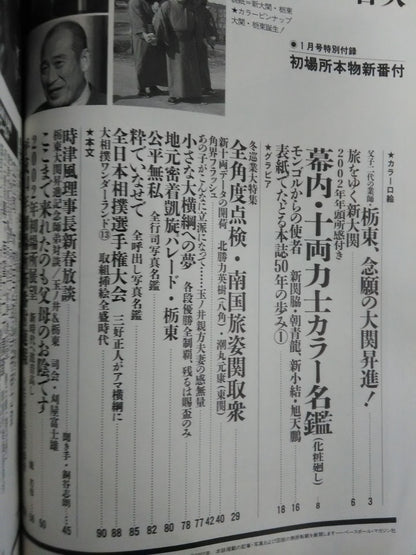 大関・栃東誕生！
★カラーピンナップ
●1月号特別付録
初場所本物新番付
★カラー口絵
父子二代の業師 栃東、念願の大関昇進！ 3
旅をゆく新大関 6
2002年頭所感付き
幕内・十両力士カラー名鑑(化粧廻し) 8
モンゴルからの使者 新関脇・朝青龍、新小結・旭天鵬 16
表紙でたどる本誌50年の歩み① 18
★グラビア
冬巡業大特集
全角度点検・南国旅姿関取衆 29
新十両データの開荷 北勝力英樹(八角)・潮丸元康(東関) 40
角界フラッシュ 42
あの子がこんなに立派になって……玉ノ井親方夫妻の感無量 77
小さな大横綱への夢 各段優勝全制覇、残るは賜盃のみ 78
地元密着凱旋パレード・栃東 80
公平無私 全行司写真名鑑 82
粋でいなせで 全呼出し写真名鑑 85
全日本相撲選手権大会 三好正人がアマ横綱に 88
大相撲ワンダーランド⑬ 取組挿絵全盛時代 90
★本文
時津風理事長新春放談 聞き手・銅谷志朗 45
栃東大関昇進記念師弟対談 玉ノ井&栃東 司会・刈屋富士雄
ここまで来れたのも父母のお陰です 50
2002年初場所展望
ベースボール・マガジン社